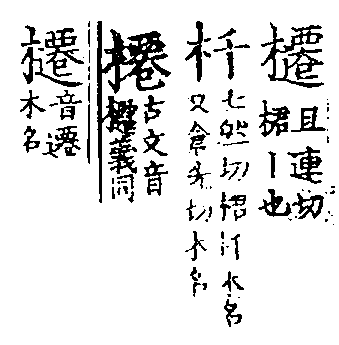 櫏
且連切
桾丨也
杄
七然切桾杄木名
又倉先切木名
古文音
義同
櫏
音遷
木名